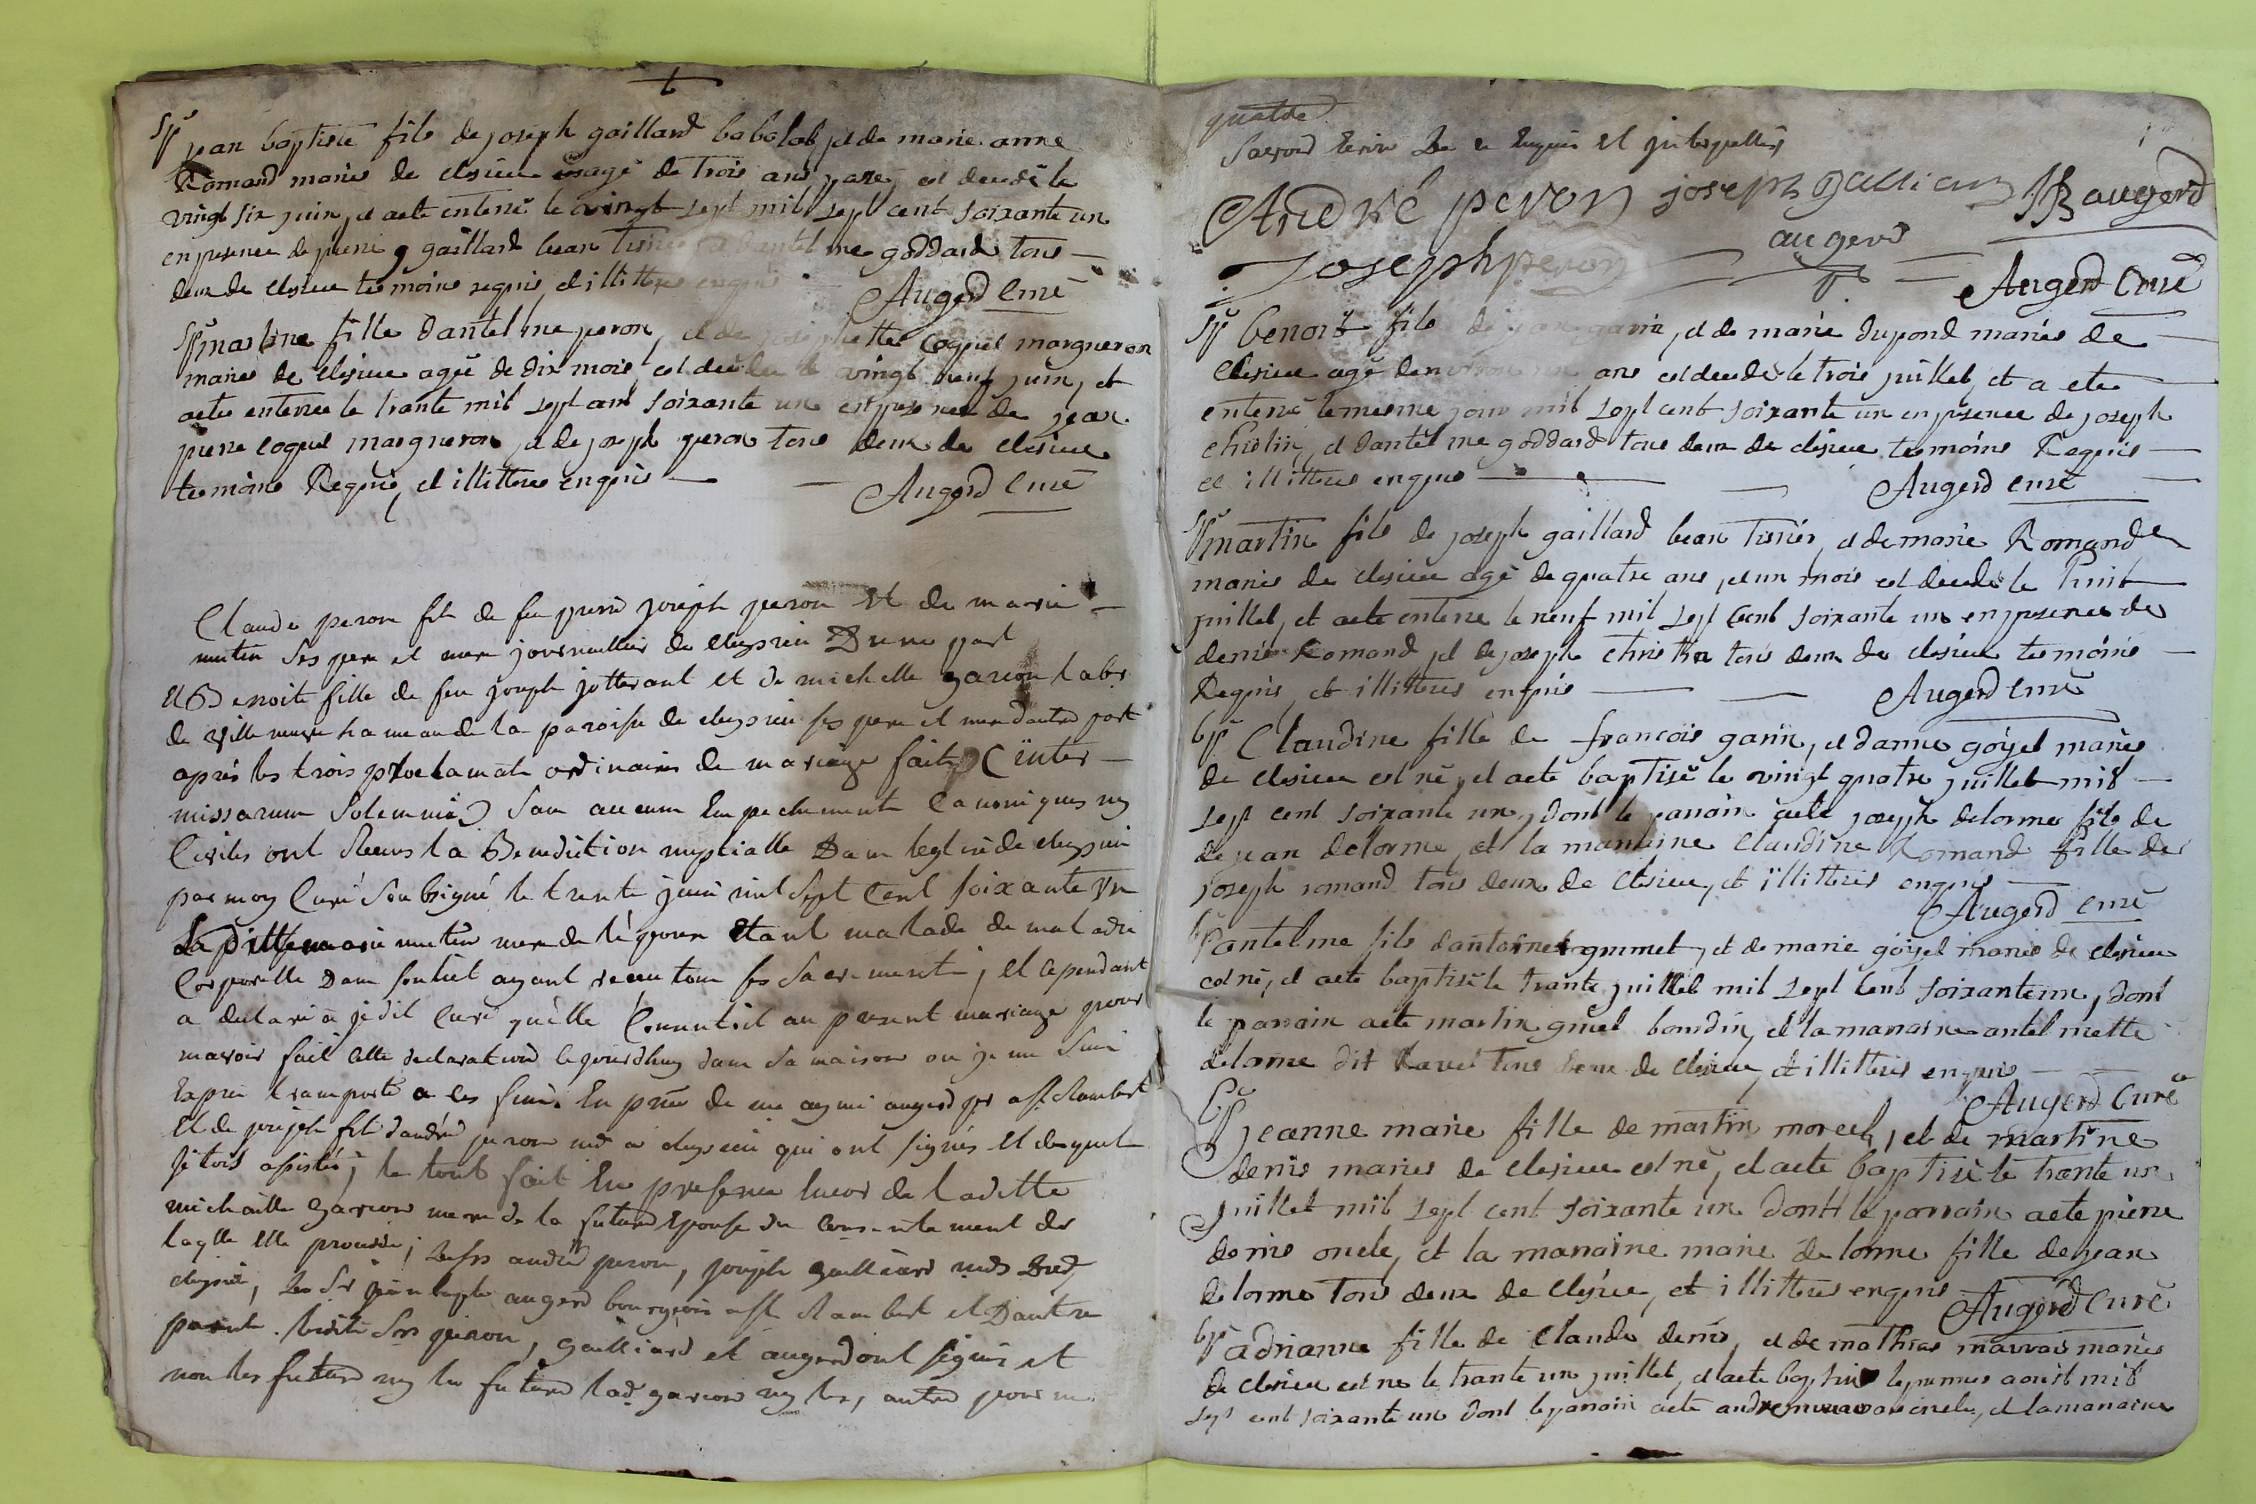 jean baptiste fils de joseph gaillard babolat et de marie anne
Romand mariés de clesieu agé de trois ans passé, est decedé le
vingt six juin, et a eté enterré le vingt sept mil sept cent soixante un
en presence de pierre gaillard bean tissier et dantelme goddard tous
deux de clesieu temoins requis, et illitteres enquis
Augerd curé
martine fille dantelme peron, et de josephette coquet margueron
mariés de clesieu agée de dix mois est decedee le vingt neuf juin, et
a eté enterree le trante mil sept cent soixante un en presence de jean
pierre coquet margueron, et de joseph peron tous deux de clesieu
temoins Requis, et illitteres enquis
Augerd curé
Claude peron fils de feu pierre joseph peron et de marie
mutin ses pere et mere journallier de cleyzieu D'une part
Et Benoite fille de feu joseph jotterant et de michelle garion labr
de ville neuve hameau de la paroisse de cleyzieu ses pere et mere d'autre part
après les trois proclamats ordinaires de mariage faits (inter
missarum solemnia) sans aucuns Empechements Canoniques ny
Civiles ont Recus la Benediction nuptialle Dans leglise de cleyzieu
par moy Curé soussigné le trente juin mil sept Cent soixante Un
La ditte marie mutin mere de l'epoux Etant malade de maladie
Corporelle Dans son lict ayant receu tous ses sacrements, et cependant
a declaré à je dit Curé qu'elle Consentoit au present mariage pour
m'avoir fait cette declaration le jourdhuy dans sa maison ou je me suis
Exprès transporté a ces fins. En pnce de me aymé augerd a st Rambert
Et de joseph fils d'andré peron md a cleyzieu qui ont signés et des quels
je tois assisté; le tout fait En presence Encor de laditte
michaille garion mere de la future Epouse du consentement de
laqlle elle procede; Les srs andré peron, joseph galliard mds Dud
cleyzieu, Le Sr jean bapte augerd bourgeois a st Rambert et D'autre
parents. lesdits Srs peron, galliard et augerd ont signés et
non les futurs ny la future lad garion ny les, autres pour ne
quatre
savoir Ecrire De ce Enquis et jnterpellés
André peron joseph galliard JB augerd
Joseph peron augerd
Augerd Curé
benoit fils de garin, et de marie dupond mariés de
Clesieu agé denviron ans est decedé le trois juillet, et a eté
enterré le mesme jour mil sept cent soixante un en presence de joseph
christin, et dantelme goddard tous deux de clesieu temoins Requis
et illitteres enquis
Augerd curé
martin fils de joseph gaillard bean tissier, et de marie Romand
mariés de clesieu agé de quatre ans, et un mois est decedé le huit
juillet, et a eté enterré le neuf mil sept Cent soixante un en presence de
denis Romand, et de joseph christin tous deux de clesieu temoins
Requis, et illitteres enquis
Augerd curé
Claudine fille de françois garin, et danne goyet mariés
de clesieu est né, et a eté baptisé le vingt quatre juillet mil
sept cent soixante un, dont le parrain a eté joseph delorme fils de
de jean delorme, et la marraine Claudine Romand fille de
joseph romand tous deux de clesieu, et illitteres enquis
Augerd curé
antelme fils dantoine grumet, et de marie goyet mariés de clesieu
est né, et a eté baptisé le trante juillet mil sept cent soixante un, dont
le parrain a eté martin bourdin, et la marraine antelmette
delorme dit Ravet tous deux de clesieu, et illitteres enquis
Augerd Curé
jeanne marie fille de martin morel, et de martine
denis mariés de clesieu est né, et a eté baptisé le trante un
juillet mil sept cent soixante un dont le parrain a eté pierre
denis oncle, et la marraine marie delorme fille de jean
delorme tous deux de clesieu, et illitteres enquis
Augerd curé
adrianne fille de claude denis, et de mathiae mavvais mariés
de clesieu est né le trante un juillet, et a eté baptisé le premier aoust mil
sept cent soixante un dont le parrain a eté andre oncle, et la marraine